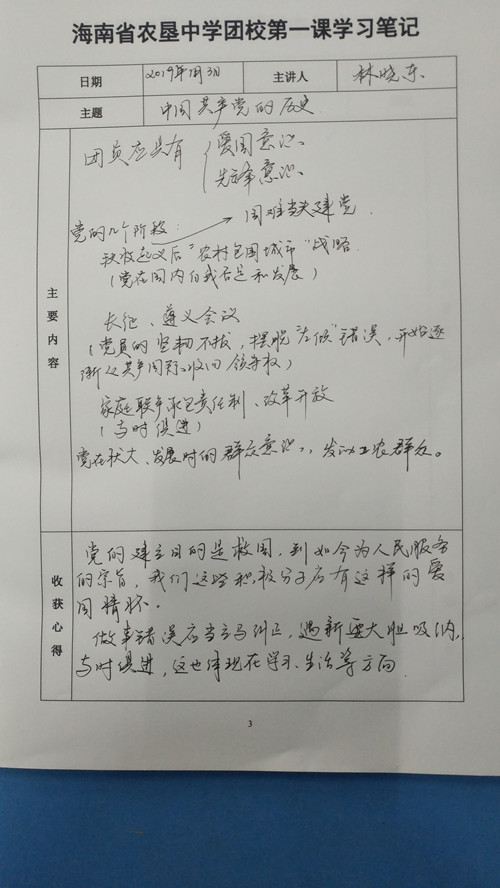 海南省农垦中学团校第一课学习笔记
日期 2019年1月3日 主讲人 林晓东
主题 中国共产党的历史
主要内容
团员应具有 爱国意识、
先锋意识、
党的几个阶段: 国难当头建党
秋收起义后"农村包围城市"战略
(党在国内自我否定和发展)
长征、遵义会议
(党员的坚韧不拔,摆脱"左倾"错误,开始逐
渐从共产国际收回领导权)
家庭联产承包责任制、改革开放
(与时俱进)
党在状大、发展时的群众意识,发动工农群众。
收获心得
党的建立目的是救国,到如今为人民服务
的宗旨,我们这些积极分子应有这样的爱
国情怀。
做事错误应当立马纠正,遇新要大胆吸纳,
与时俱进,这也体现在学习、生活等方面
3